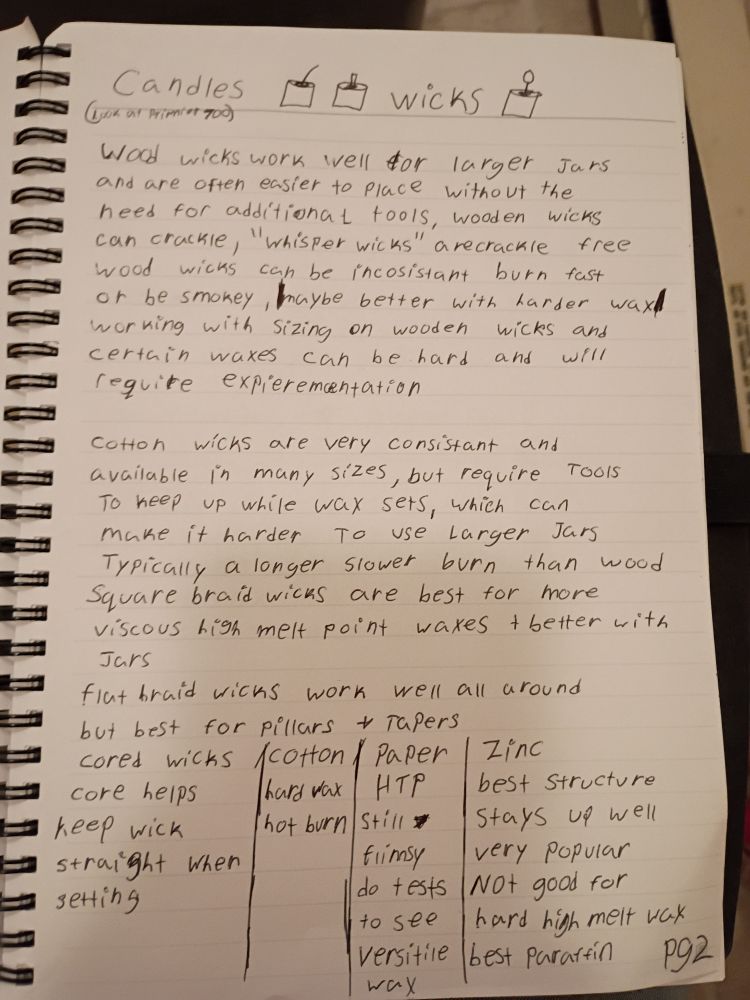 Candles wicks
(Look at Primier 700)
Wood wicks work well for larger Jars
and are often easier to place without the
need for additional tools, wooden wicks
can crackle, "whisper wicks" are crackle free
wood wicks can be incosistant burn fast
or be smokey, maybe better with harder wax
working with sizing on wooden wicks and
certain waxes can be hard and will
require expierementation
cotton wicks are very consistant and
available in many sizes, but require Tools
To keep up while wax sets, which can
make it harder To use Larger Jars
Typically a longer slower burn than wood
Square braid wicks are best for more
viscous high melt point waxes + better with
Jars
flat braid wicks work well all around
but best for pillars + Tapers
cored wicks
core helps
keep wick
straight when
setting
cotton
hard wax
hot burn
Paper
HTP
still
flimsy
do tests
to see
versitile
wax
Zinc
best structure
stays up well
very popular
NOT good for
hard high melt wax
best paraffin
pg2